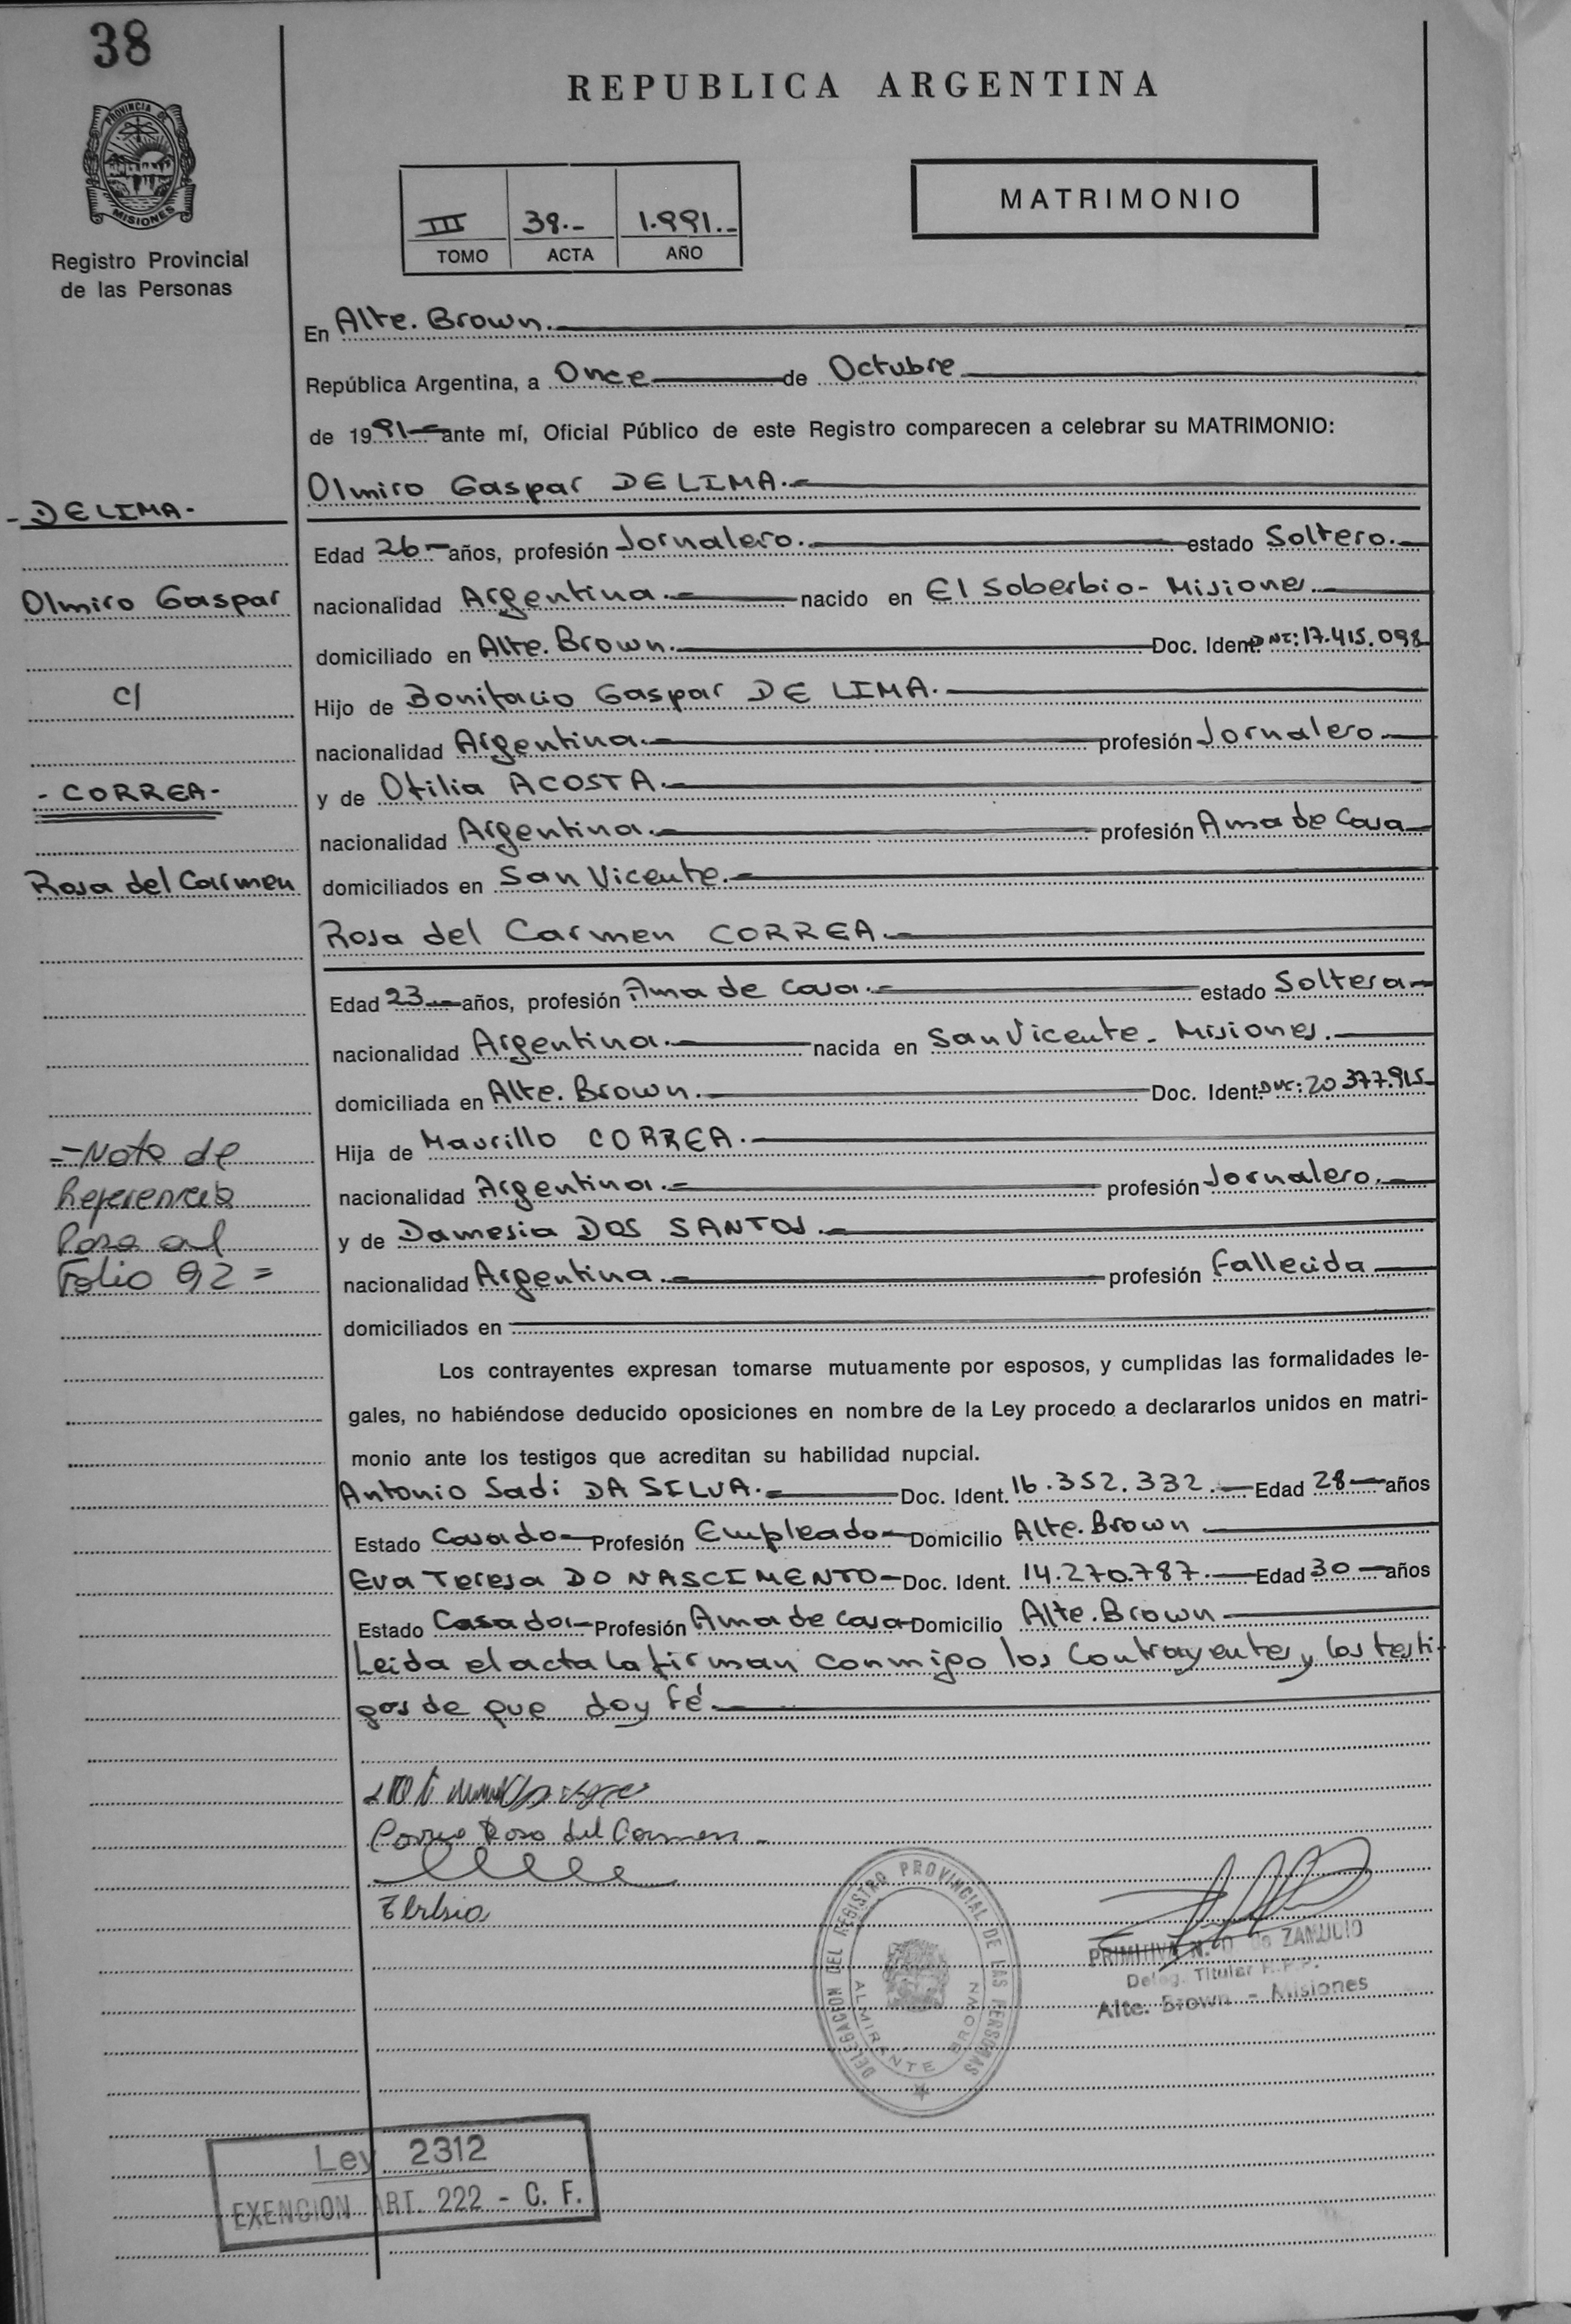 38
PROVINCIA DE
MISIONES
Registro Provincial
de las Personas
- DELIMA-
Olmiro Gaspar
c/
- CORREA-
Rosa del Carmen
=Nota de
Referencia
Pasa al
Folio 92=
REPUBLICA ARGENTINA
MATRIMONIO
III 38.- 1.991.-
TOMO ACTA AÑO
En Alte. Brown.
República Argentina, a Once de Octubre
de 1991- ante mí, Oficial Público de este Registro comparecen a celebrar su MATRIMONIO:
Olmiro Gaspar DELIMA.-
Edad 26- años, profesión Jornalero.- estado Soltero.-
nacionalidad Argentina.- nacido en El Soberbio- Misiones.-
domiciliado en Alte. Brown.- Doc. Ident. DNI: 17.415.098
Hijo de Bonifacio Gaspar DE LIMA.-
nacionalidad Argentina.- profesión Jornalero-
y de Otilia ACOSTA.-
nacionalidad Argentina.- profesión Ama de Casa-
domiciliados en San Vicente.-
Rosa del Carmen CORREA.-
Edad 23.- años, profesión Ama de Casa.- estado Soltera-
nacionalidad Argentina.- nacida en San Vicente- Misiones.-
domiciliada en Alte. Brown.- Doc. Ident. DNI: 20377.915-
Hija de Maurillo CORREA.-
nacionalidad Argentina.- profesión Jornalero.-
y de Damesia DOS SANTOS.-
nacionalidad Argentina.- profesión Fallecida-
domiciliados en
Los contrayentes expresan tomarse mutuamente por esposos, y cumplidas las formalidades le-
gales, no habiéndose deducido oposiciones en nombre de la Ley procedo a declararlos unidos en matri-
monio ante los testigos que acreditan su habilidad nupcial.
Antonio Sadi DA SILVA.- Doc. Ident. 16.352.332.- Edad 28- años
Estado Casado- Profesión Empleado- Domicilio Alte. Brown
Eva Teresa DO NASCIMENTO- Doc. Ident. 14.270.787.- Edad 30- años
Estado Casada- Profesión Ama de Casa- Domicilio Alte. Brown-
Leida el acta la firman conmigo los Contrayentes y los testi-
gos de que doy fé.-
Correa Rosa del Carmen-
DELEGACION DEL REGISTRO PROVINCIAL DE LAS PERSONAS
ALMIRANTE BROWN
PRIMITIVA N. D de ZAMUDIO
Deleg. Titular R.P.P.
Alte. Brown - Misiones
Ley 2312
EXENCION ART. 222 - C. F.